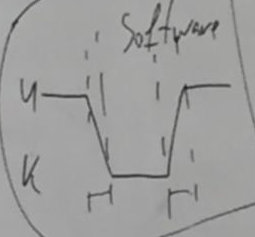 Software
4
K